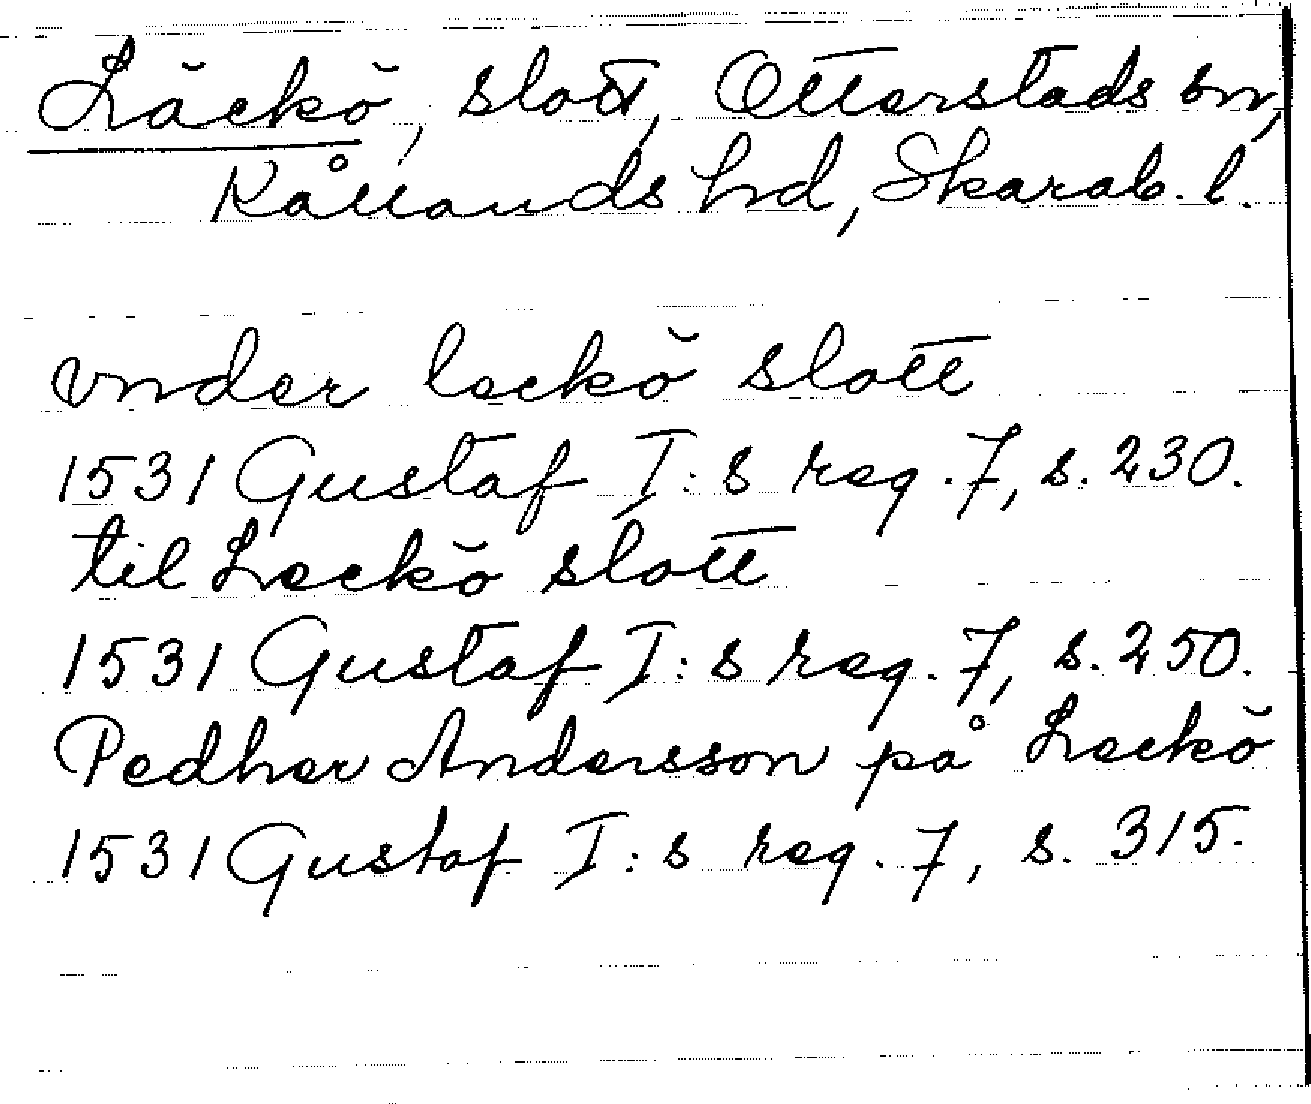 Läckö, slott, Otterstads sn,
Kållands hd, Skarab. l.
vnder leckö slott
1531 Gustaf I:s reg. 7, s. 230.
til Leckö slott
1531 Gustaf I:s reg. 7, s. 250.
Pedher Andersson på Leckö
1531 Gustaf I:s reg. 7, s. 315.